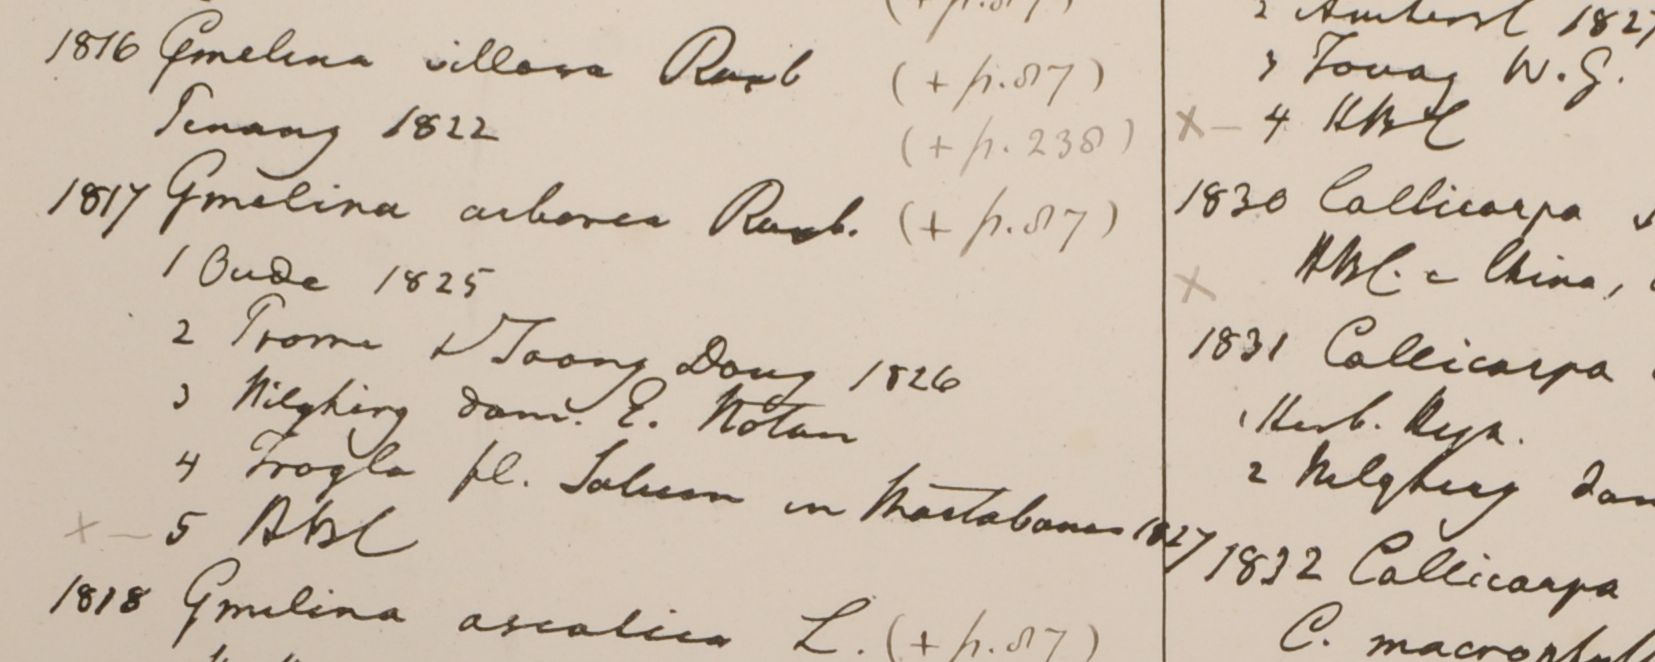 1816 Gmelina villosa Roxb (+ p.87)
Penang 1822 (+ p. 238)
1817 Gmelina arborea Roxb. (+ p.87)
1 Oude 1825
2 Prome & Taong Dong 1826
3 Nilghiry dom. E. Noton
4 Trogla fl. Saluen in Martabanas 1827
× — 5 HBC
1818 Gmelina asiatica L. (+ p.87)
2 Amherst 1827
3 Tovag W.G.
× — 4 HBC
1830 Callicarpa
× HBC. e China,
1831 Callicarpa
1 Herb. Heyn.
2 Nilghery dom
1832 Callicarpa
C. macrophyll